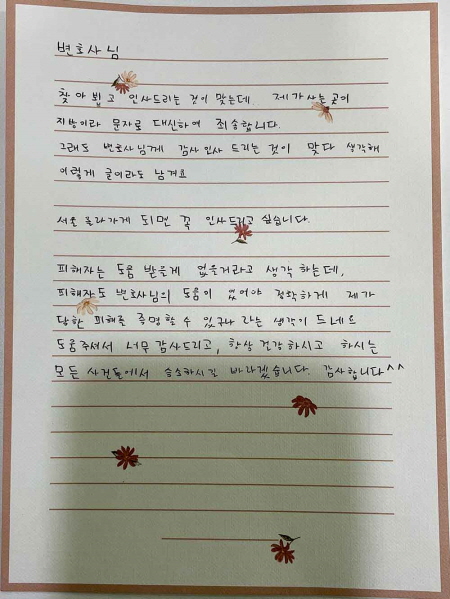 변호사님
찾아뵙고 인사드리는 것이 맞는데. 제가 사는 곳이
지방이라 문자로 대신하여 죄송합니다.
그래도 변호사님께 감사인사 드리는 것이 맞다 생각해
이렇게 글이라도 남겨요
서울 올라가게 되면 꼭 인사드리고 싶습니다.
피해자는 도움 받을게 없을거라고 생각 하는데,
피해자도 변호사님의 도움이 있어야 정확하게 제가
당한 피해를 증명할 수 있구나 라는 생각이 드네요
도움주셔서 너무 감사드리고, 항상 건강하시고 하시는
모든 사건들에서 승소하시길 바라겠습니다. 감사합니다^^